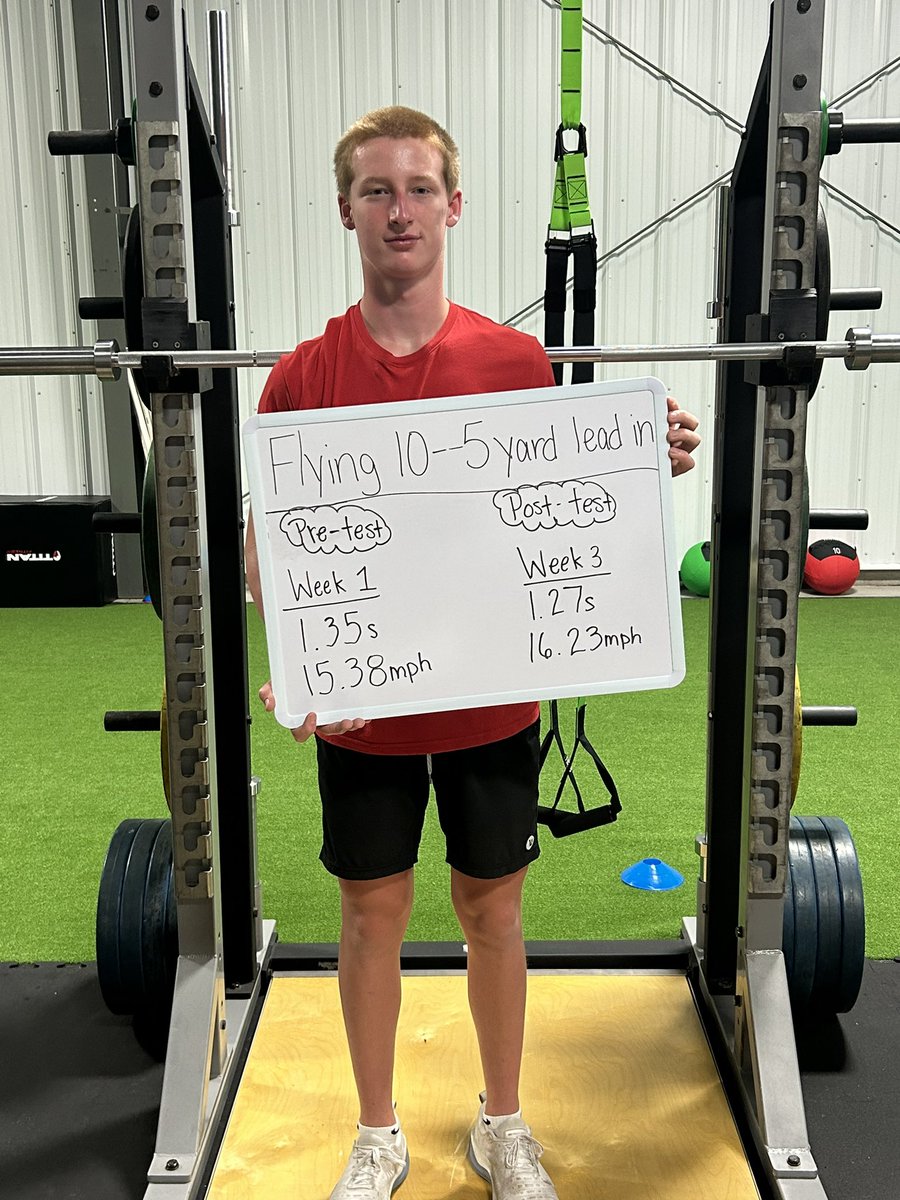 Flying 10--5 yard lead in
Pre-test
Week 1
1.35s
15.38mph
Post-test
Week 3
1.27s
16.23mph
TITAN
10